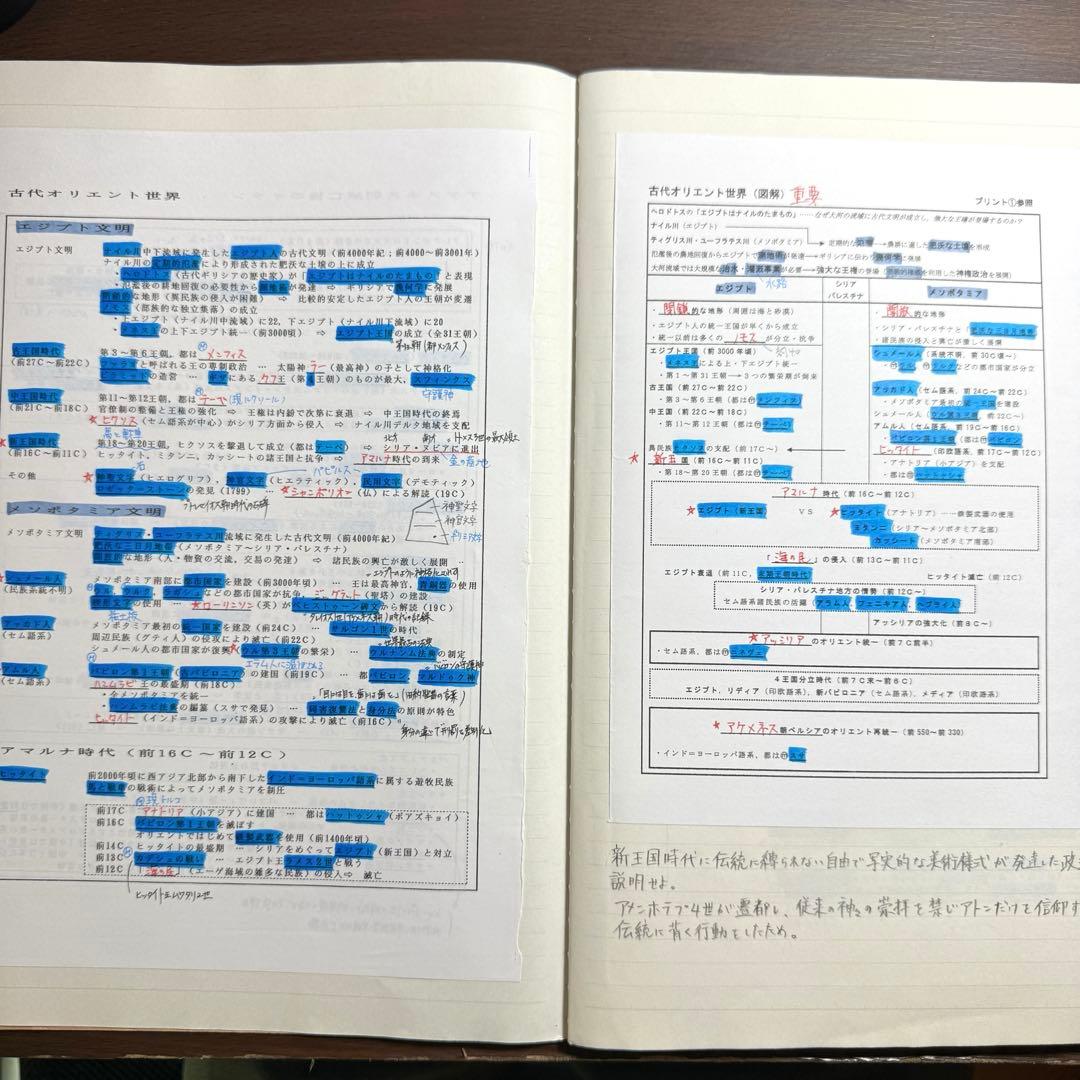 古代オリエント世界
エジプト文明
エジプト文明 ナイル川中下流域に発生したエジプト人の古代文明（前4000年紀；前4000～前3001年）
ナイル川の定期的氾濫により形成された肥沃な土壌の上に成立
・ヘロドトス（古代ギリシアの歴史家）が「エジプトはナイルのたまもの」と表現
・氾濫後の耕地回復の必要性から測地術が発達 ⇒ ギリシアで幾何学に発展
閉鎖的な地形（異民族の侵入が困難） ⇒ 比較的安定したエジプト人の王朝が変遷
ノモス（部族的な独立集落）の成立
・上エジプト（ナイル川中流域）に22，下エジプト（ナイル川下流域）に20
・メネス王の上下エジプト統一（前3000頃） ⇒ エジプト王国の成立（全31王朝）
第1王朝（都メンフィス）
古王国時代 第3～第6王朝，都は メンフィス
（前27C～前22C） ファラオと呼ばれる王の専制政治 … 太陽神ラー（最高神）の子として神格化
ピラミッドの造営 … ギザにあるクフ王（第4王朝）のものが最大，スフィンクス
守護神
中王国時代 第11～第12王朝，都はテーベ（現ルクソール）
（前21C～前18C） 官僚制の整備と王権の強化 ⇒ 王権は内紛で次第に衰退 ⇒ 中王国時代の終焉
★ヒクソス（セム語系が中心）がシリア方面から侵入 ⇒ ナイル川デルタ地域を支配
馬と戦車
★新王国時代 第18～第20王朝，ヒクソスを撃退して成立（都はテーベ） ⇒ シリア・ヌビアに進出
（前16C～前11C） ヒッタイト，ミタンニ，カッシートの諸王国と抗争 ⇒ アマルナ時代の到来 金の産地
パピルス
その他 ★神聖文字（ヒエログリフ），神官文字（ヒエラティック），民用文字（デモティック）
ロゼッタ＝ストーンの発見（1799） … ★シャンポリオン（仏）による解読（19C）
神聖文字
メソポタミア文明
メソポタミア文明 ティグリス・ユーフラテス川流域に発生した古代文明（前4000年紀）
肥沃な三日月地帯（メソポタミア～シリア・パレスチナ）
開放的な地形（人・物資の交流，交易の発達） ⇒ 諸民族の興亡が激しく展開
★シュメール人 メソポタミア南部に都市国家を建設（前3000年頃） … 王は最高神官，青銅器の使用
（民族系統不明） ウル，ウルク，ラガシュなどの都市国家が抗争，ジッグラト（聖塔）の建設
楔形文字の使用 … ★ローリンソン（英）がベヒストゥーン碑文から解読（19C）
粘土板
アッカド人 メソポタミア最初の統一国家を建設（前24C） … サルゴン1世の時代
（セム語系） 周辺民族（グティ人）の侵攻により滅亡（前22C）
シュメール人の都市国家が復興★（ウル第3王朝の繁栄） … ウルナンム法典の制定
アムル人 バビロン第1王朝（古バビロニア）の建国（前19C） … 都バビロン，マルドゥク神
（セム語系） ハンムラビ王の最盛期（前18C）
・全メソポタミアを統一
・ハンムラビ法典の編纂（スサで発見） … 同害復讐法と身分法の原則が特色
ヒッタイト（インド＝ヨーロッパ語系）の攻撃により滅亡（前16C）
アマルナ時代（前16C～前12C）
ヒッタイト 前2000年頃に西アジア北部から南下したインド＝ヨーロッパ語系に属する遊牧民族
馬と戦車の戦術によってメソポタミアを制圧
現トルコ
前17C アナトリア（小アジア）に建国 … 都はハットゥシャ（ボアズキョイ）
前16C バビロン第1王朝を滅ぼす
オリエントではじめて鉄製武器を使用（前1400年頃）
前14C ヒッタイトの最盛期 … シリアをめぐってエジプト（新王国）と対立
前13C カデシュの戦い … エジプト王ラメス2世と戦う
前12C 「海の民」（エーゲ海域の雑多な民族）の侵入⇒ 滅亡
古代オリエント世界（図解） 重要 プリント①参照
ヘロドトスの「エジプトはナイルのたまもの」……なぜ大河の流域に古代文明が成立し，強大な王権が登場するのか？
ナイル川（エジプト）
ティグリス川・ユーフラテス川（メソポタミア） 定期的な氾濫→農耕に適した肥沃な土壌を形成
氾濫後の農地回復からエジプトで測地術が発達→ギリシアに伝わり幾何学に発展
大河流域では大規模な治水・灌漑事業が必要→強大な王権の登場
水路
エジプト シリア パレスチナ メソポタミア
・閉鎖的な地形（周囲は海と砂漠） ・開放的な地形
・エジプト人の統一王国が早くから成立 ・シリア・パレスチナと「肥沃な三日月地帯
・統一以前は多くのノモスが分立・抗争 ・諸民族の侵入と興亡が激しく展開
エジプト王国（前3000年頃） シュメール人（系統不明，前30C頃～）
・メネス王による上・下エジプト統一 ・ウル，ウルクなどの都市国家が分立
・第1～第31王朝→3つの繁栄期が到来
古王国（前27C～前22C） アッカド人（セム語系，前24C～前22C）
・第3～第6王朝（都はメンフィス） ・メソポタミア最初の統一国家を建設
中王国（前22C～前18C） シュメール人（ウル第3王朝，前22C～）
・第11～第12王朝（都はテーベ） アムル人（セム語系，前19C～前16C）
・バビロン第1王朝（都はバビロン
異民族ヒクソスの支配（前17C～） ヒッタイト（印欧語系，前17C～前12C）
★新王国（前16C～前11C） ・アナトリア（小アジア）を支配
・第18～第20王朝（都はテーベ）
アマルナ時代（前16C～前12C）
★エジプト（新王国） VS ★ヒッタイト（アナトリア）……鉄製武器の使用
ミタンニ（シリア～メソポタミア北部）
カッシート（メソポタミア南部）
「海の民」の侵入（前13C～前11C）
エジプト衰退（前11C，末期王朝時代 ヒッタイト滅亡（前12C）
シリア・パレスチナ地方の情勢（前12C～）
セム語系諸民族の活躍 アラム人，フェニキア人，ヘブライ人
アッシリアの強大化（前8C～）
★アッシリアのオリエント統一（前7C前半）
・セム語系，都はニネヴェ
4王国分立時代（前7C末～前6C）
エジプト，リディア（印欧語系），新バビロニア（セム語系），メディア（印欧語系）
★アケメネス朝ペルシアのオリエント再統一（前550～前330）
・インド＝ヨーロッパ語系，都はスサ
新王国時代に伝統に縛られない自由で写実的な美術様式が発達した
説明せよ。
アメンホテプ4世が遷都し、従来の神々の崇拝を禁じアトンだけを信仰す
伝統に背く行動をしたため。